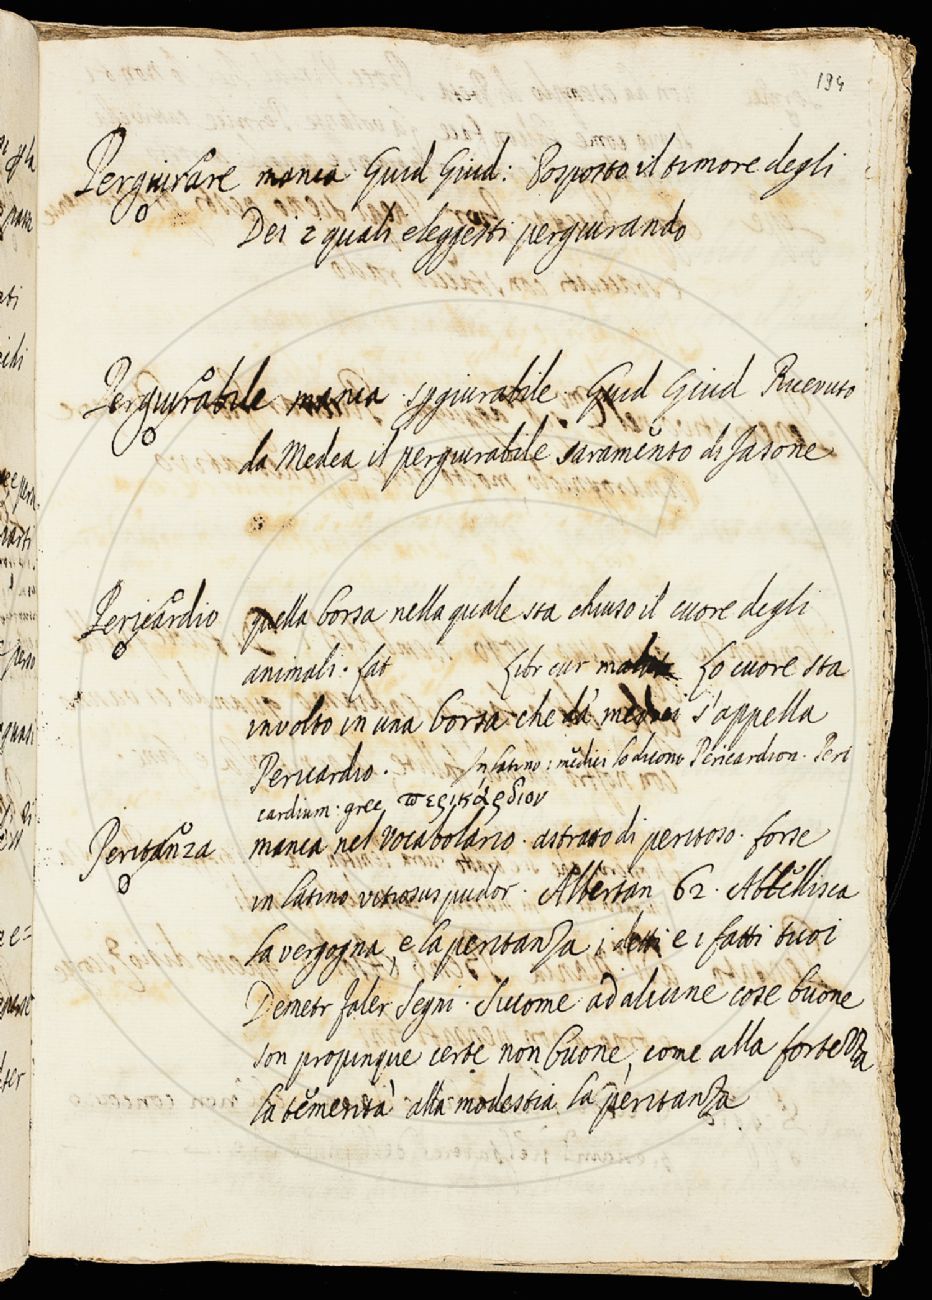 194
Pergiurare manca Guid Giud: Posposto il timore degli
Dei i quali eleggesti pergiurando
Pergiurabile manca spgiurabile. Guid Giud Ricevuto
da Medea il pergiurabile saramento di Jasone
Pericardio quella borsa nella quale sta chiuso il cuore degli
animali. fat Libr cur malat Lo cuore sta
involto in una borsa che da' medici s'appella
Pericardio. In latino: medici lo dicono Pericardion. Peri
cardium. grec. περικάρδιον
Peritanza manca nel Vocabolario. astratto di peritoso. forse
in latino vitiosus pudor. Albertan 62. Abbellisca
la vergogna, e la peritanza i detti e i fatti tuoi
Demetr faler Segni. Siccome ad alcune cose buone
son propinque certe non buone, come alla fortezza
la temerità alla modestia la peritanza